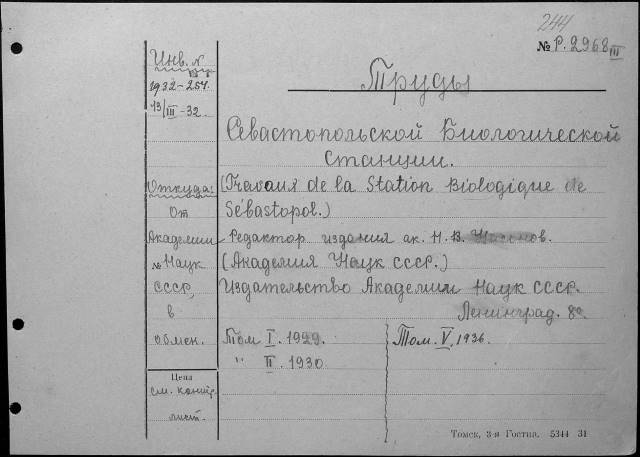 244
№ Р. 2968 III
Труды
Севастопольской Биологической
Станции.
(Travaux de la Station Biologique de
Sébastopol.)
Редактор издания ак. Н. В. Насонов.
(Академия Наук СССР.)
Издательство Академии Наук СССР.
Ленинград. 8º.
Том I. 1929.
" II. 1930.
Том. V. 1936.
Инв. №
1932-254.
13/III-32.
Откуда:
От
Академии
Наук
СССР,
в
обмен.
Цена
см. контр.
лист.
Томск, 3-я Гостип. 5344 31